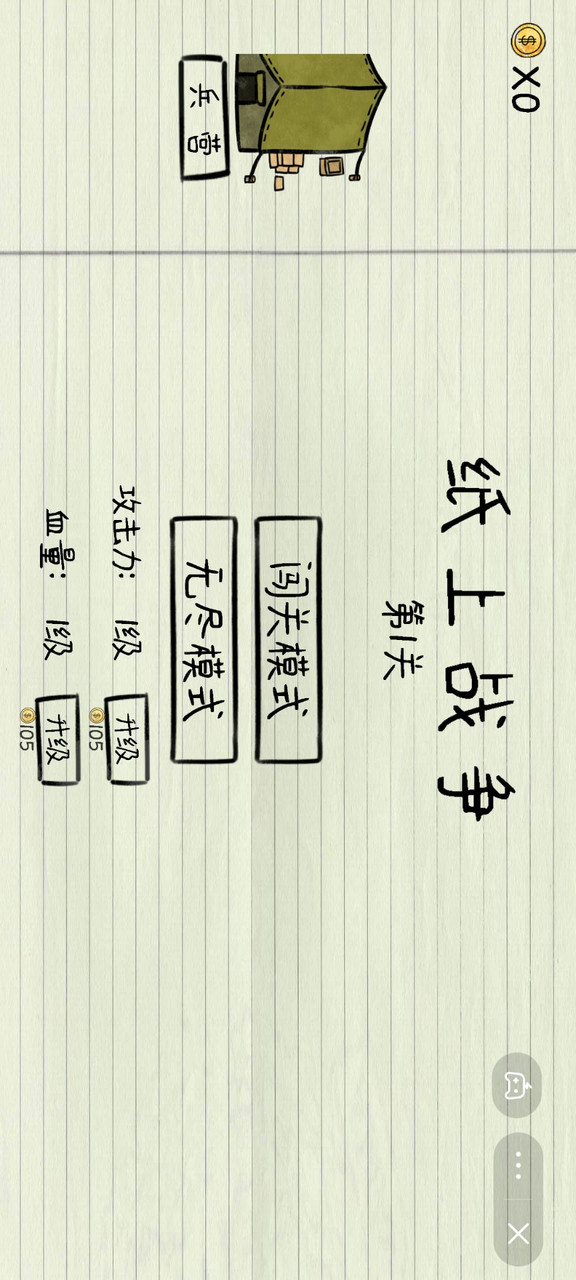 X0
兵营
纸上战争
第1关
闯关模式
无尽模式
攻击力： 1级 升级
105
血量： 1级 升级
105